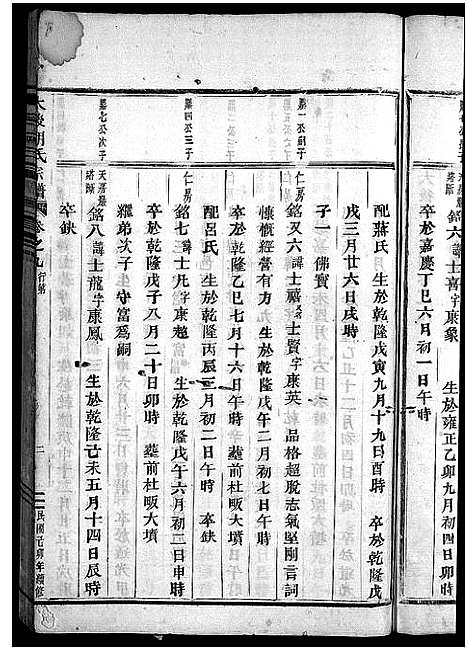 銘六諱士喜字康象　生於雍正乙卯九月初四日卯時
卒於嘉慶丁巳六月初一日午時
配蔣氏　生於乾隆戊寅九月十九日酉時　卒於乾隆戊
戌三月廿六日戌時
子一　佛寶
仁房
銘又六諱士禧又名士賢字康英　品格超脫志氣堅剛言詞
慷慨經營有方　生於乾隆戊午二月初七日午時
卒於乾隆乙巳七月十六日午時　葬前杜畈大墳
配呂氏　生於乾隆丙辰三月初二日午時　卒缺
公三子
仁房
銘七諱士凡字康超　生於乾隆戊午六月初二日申時
卒於乾隆戊子八月二十日卯時　葬前杜畈大墳
繼弟次子守富為嗣
七公次子
銘八諱士龍字康鳳　生於乾隆己未五月十四日辰時
卒缺
胡氏宗譜　卷之九　行第
民國己卯年續修